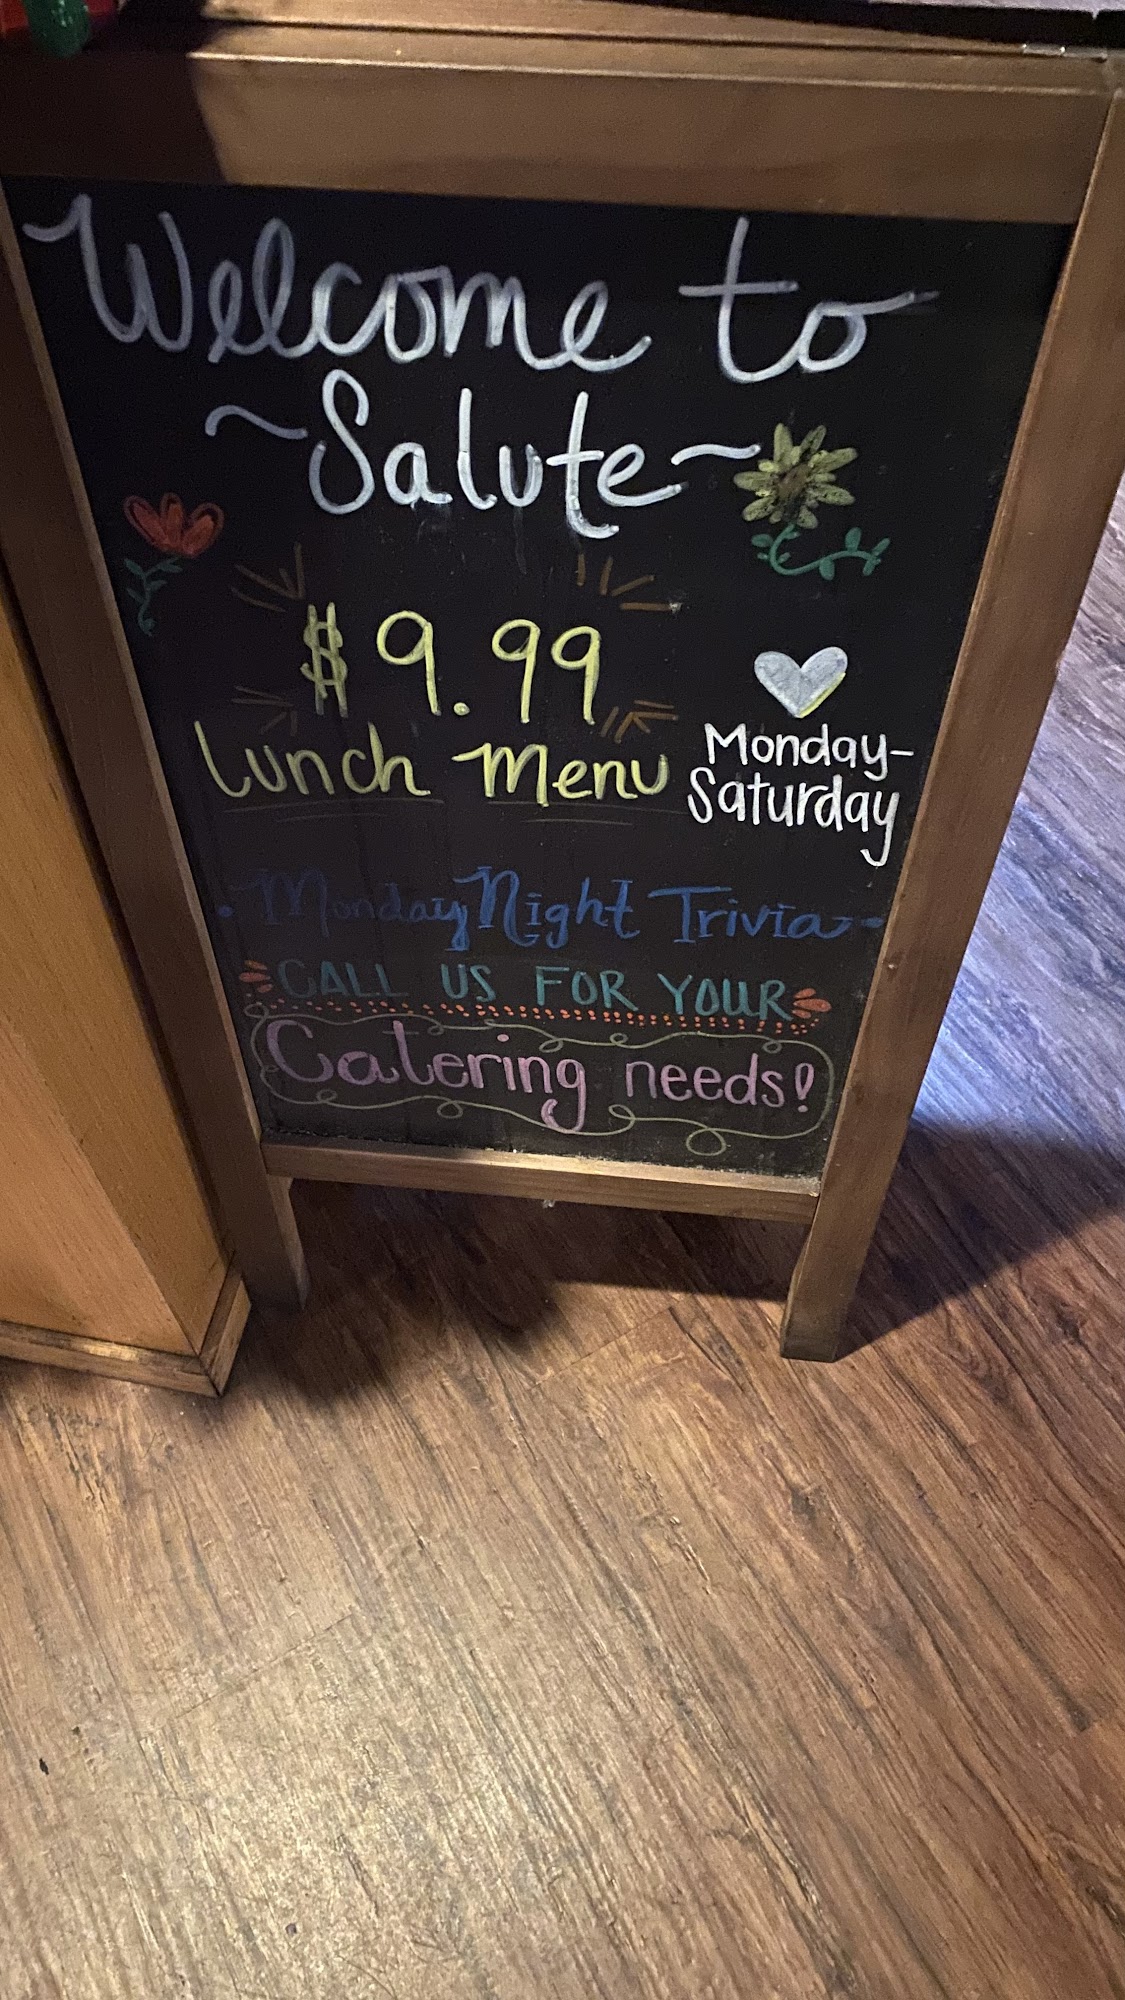 Welcome to
~Salute~
$9.99
Lunch Menu
Monday-
Saturday
Monday Night Trivia
CALL US FOR YOUR
Catering needs!